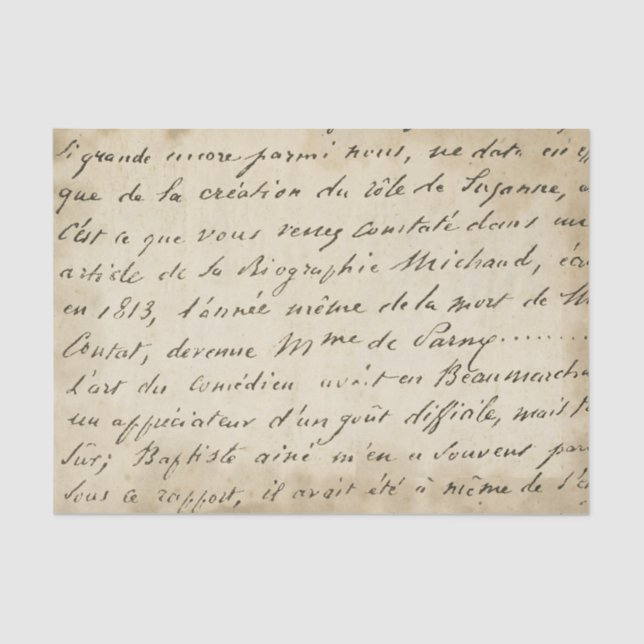 si grande encore parmi nous, ne date en
que de la création du rôle de Suzanne,
C'est ce que vous verrez constaté dans un
article de la Biographie Michaud,
en 1813, l'année même de la mort de
Contat, devenue Mme de Parny........
L'art du comédien avait en Beaumarcha
un appréciateur d'un goût difficile, mais
sûr; Baptiste ainé m'en a souvent
sous ce rapport, il avait été à même de